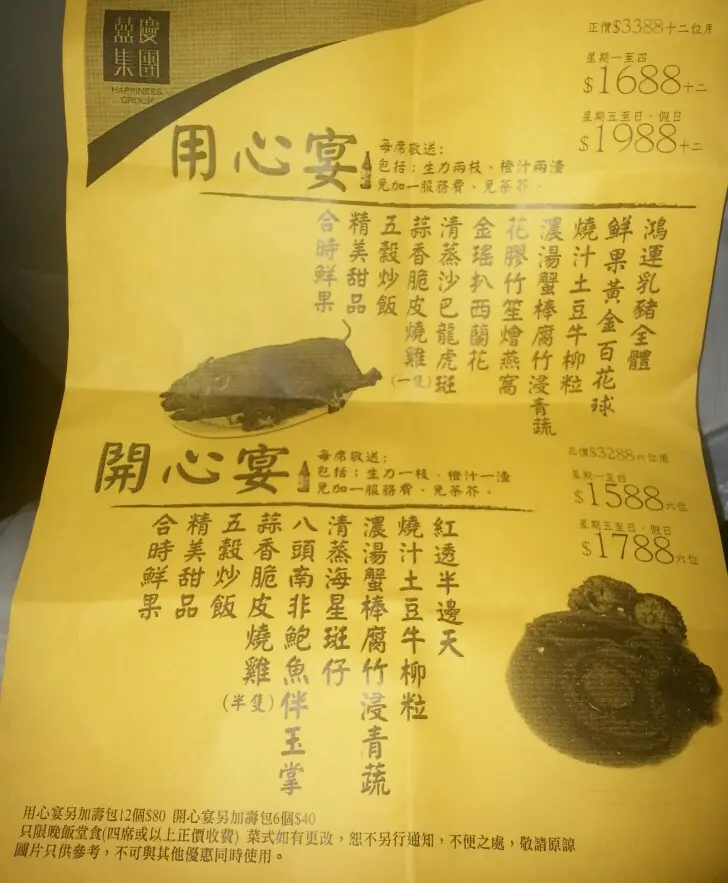 囍慶
集團
HAPPINESS
GROUP
正價$3388十二位用
星期一至四
$1688十二
星期五至日·假日
$1988十二
用心宴
每席敬送:
包括:生力兩枝、橙汁兩渣
免加一服務費、免茶芥。
鴻運乳豬全體
鮮果黃金百花球
燒汁土豆牛柳粒
濃湯蟹棒腐竹浸青蔬
花膠竹笙燴燕窩
金瑤扒西蘭花
清蒸沙巴龍虎斑
蒜香脆皮燒雞(一隻)
五穀炒飯
精美甜品
合時鮮果
開心宴
每席敬送:
包括:生力一枝、橙汁一渣
免加一服務費、免茶芥。
正價$3288六位用
星期一至四
$1588六位
星期五至日·假日
$1788六位
紅透半邊天
燒汁土豆牛柳粒
濃湯蟹棒腐竹浸青蔬
清蒸海星斑仔
八頭南非鮑魚伴玉掌
蒜香脆皮燒雞(半隻)
五穀炒飯
精美甜品
合時鮮果
用心宴另加壽包12個$80 開心宴另加壽包6個$40
只限晚飯堂食(四席或以上正價收費) 菜式如有更改,恕不另行通知,不便之處,敬請原諒
圖片只供參考,不可與其他優惠同時使用。